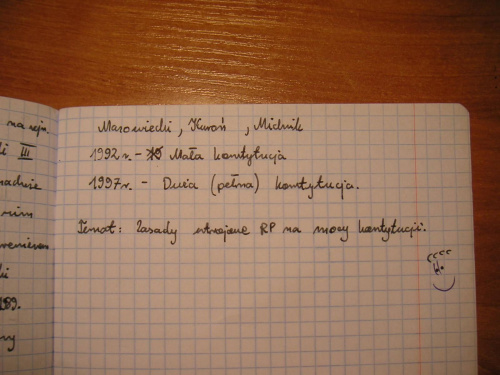 na sejm.
III
Mazowiecki, Kuroń, Michnik
1992 r. - Mała konstytucja
1997 r. - Duża (pełna) konstytucja.
Temat: Zasady ustrojowe RP na mocy konstytucji.
89.